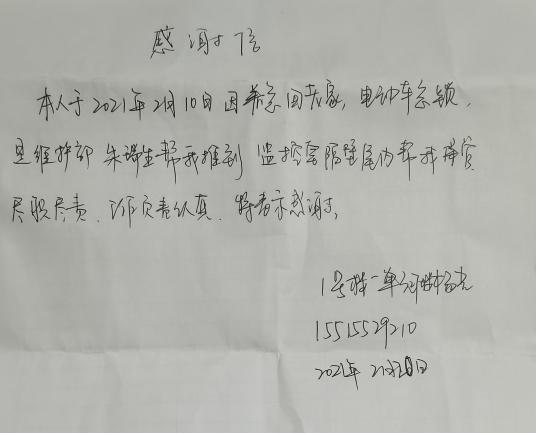 感谢信
本人于2021年2月10日因着急回老家,电动车忘锁,
是维护部 朱瑞生帮我推到 监控室隔壁屋内帮我看管
尽职尽责、工作负责认真、特表示感谢。
1号楼一单元
15515529210
2021年2月20日